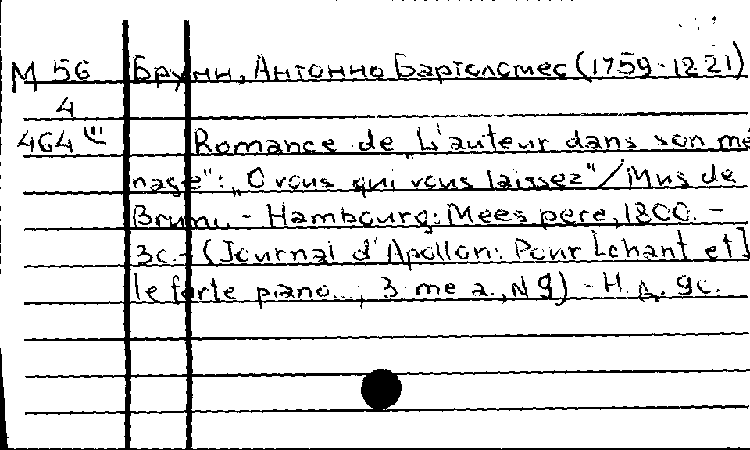 М 56 Бруни, Антонио Бартоломео (1759-1821)
4
464 Romance de „L'auteur dans son mé
nage": „O vous qui vous laissez" / Mus de
Bruni. - Hambourg: Mees père, 1800. -
3с. - (Journal d'Apollon: Pour l chant et
le forte piano..., 3 me a., N 9) - Н. д. 9с.